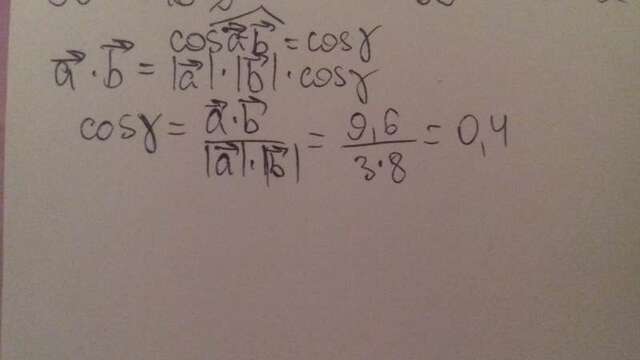 cos a⃗b⃗ = cosγ
a⃗ · b⃗ = |a⃗| · |b⃗| · cosγ
cosγ = a⃗·b⃗ / |a⃗|·|b⃗| = 9,6 / 3·8 = 0,4